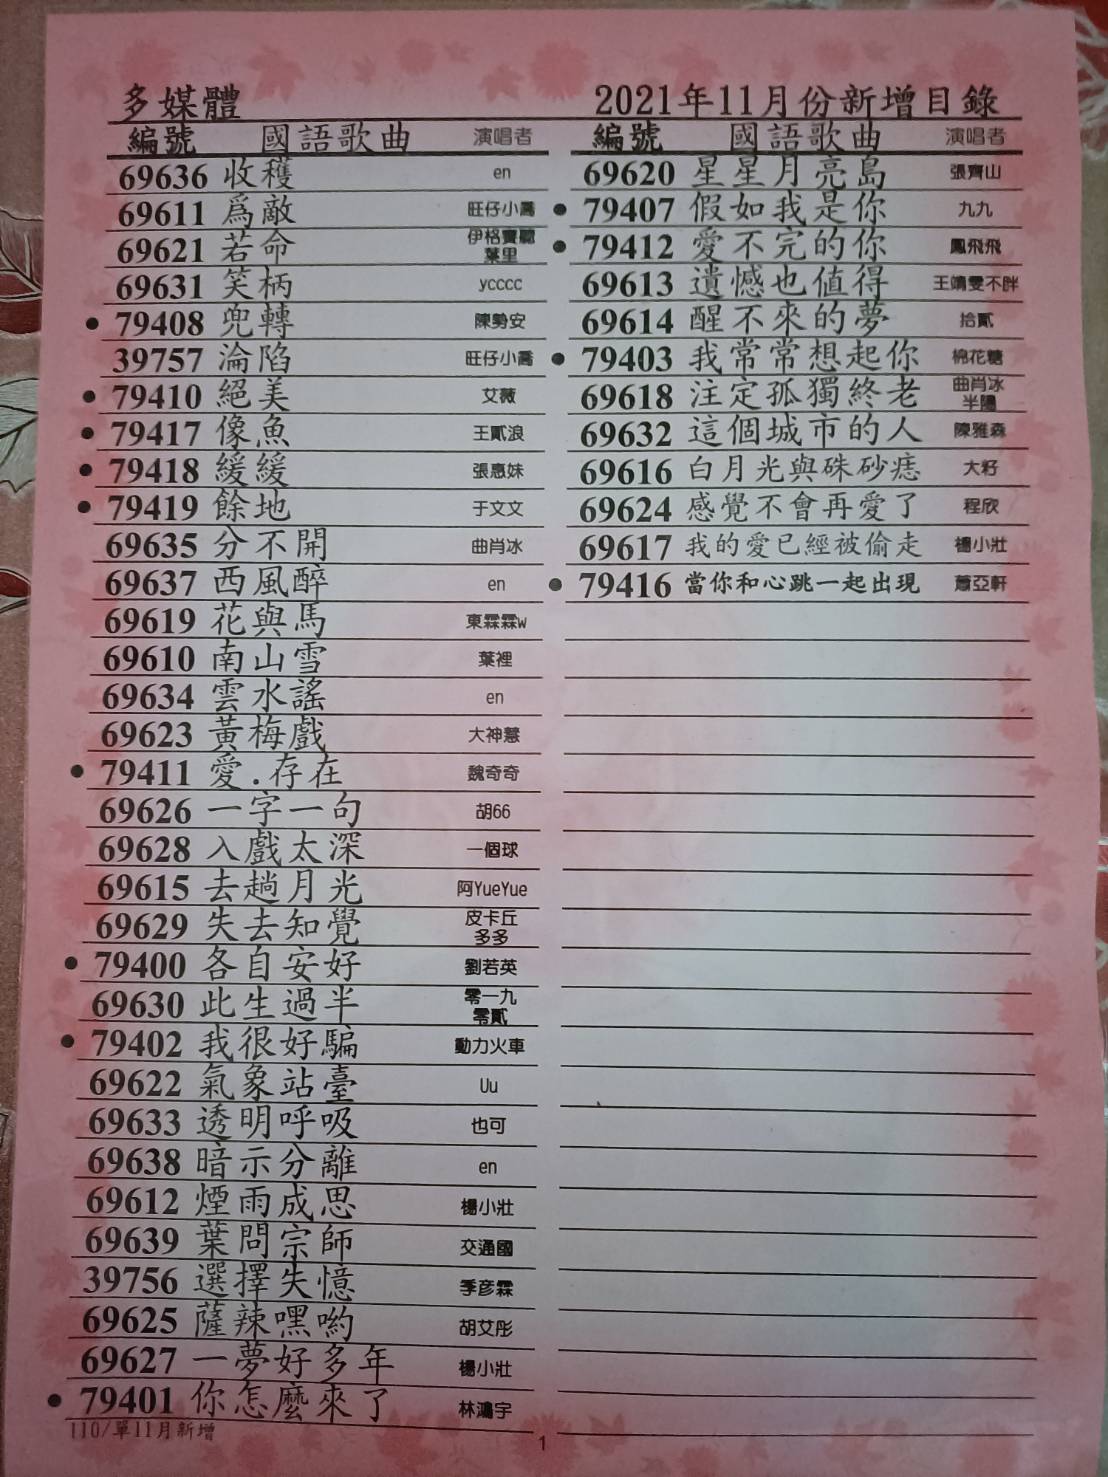 多媒體
2021年11月份新增目錄
編號 國語歌曲 演唱者
69636 收穫 en
69611 爲敵 旺仔小喬
69621 若命 伊格賽聽 葉里
69631 笑柄 ycccc
● 79408 兜轉 陳勢安
39757 淪陷 旺仔小喬
● 79410 絕美 艾薇
● 79417 像魚 王貳浪
● 79418 緩緩 張惠妹
● 79419 餘地 于文文
69635 分不開 曲肖冰
69637 西風醉 en
69619 花與馬 東霖霖w
69610 南山雪 葉裡
69634 雲水謠 en
69623 黃梅戲 大神慧
● 79411 愛.存在 魏奇奇
69626 一字一句 胡66
69628 入戲太深 一個球
69615 去趟月光 阿YueYue
69629 失去知覺 皮卡丘 多多
● 79400 各自安好 劉若英
69630 此生過半 零一九 零貳
● 79402 我很好騙 動力火車
69622 氣象站臺 Uu
69633 透明呼吸 也可
69638 暗示分離 en
69612 煙雨成思 楊小壯
69639 葉問宗師 交通國
39756 選擇失憶 季彥霖
69625 薩辣嘿喲 胡艾彤
69627 一夢好多年 楊小壯
● 79401 你怎麼來了 林鴻宇
110/單11月新增
編號 國語歌曲 演唱者
69620 星星月亮島 張齊山
● 79407 假如我是你 九九
● 79412 愛不完的你 鳳飛飛
69613 遺憾也值得 王靖雯不胖
69614 醒不來的夢 拾貳
● 79403 我常常想起你 棉花糖
69618 注定孤獨終老 曲肖冰 半陽
69632 這個城市的人 陳雅森
69616 白月光與硃砂痣 大籽
69624 感覺不會再愛了 程欣
69617 我的愛已經被偷走 楊小壯
● 79416 當你和心跳一起出現 蕭亞軒
1